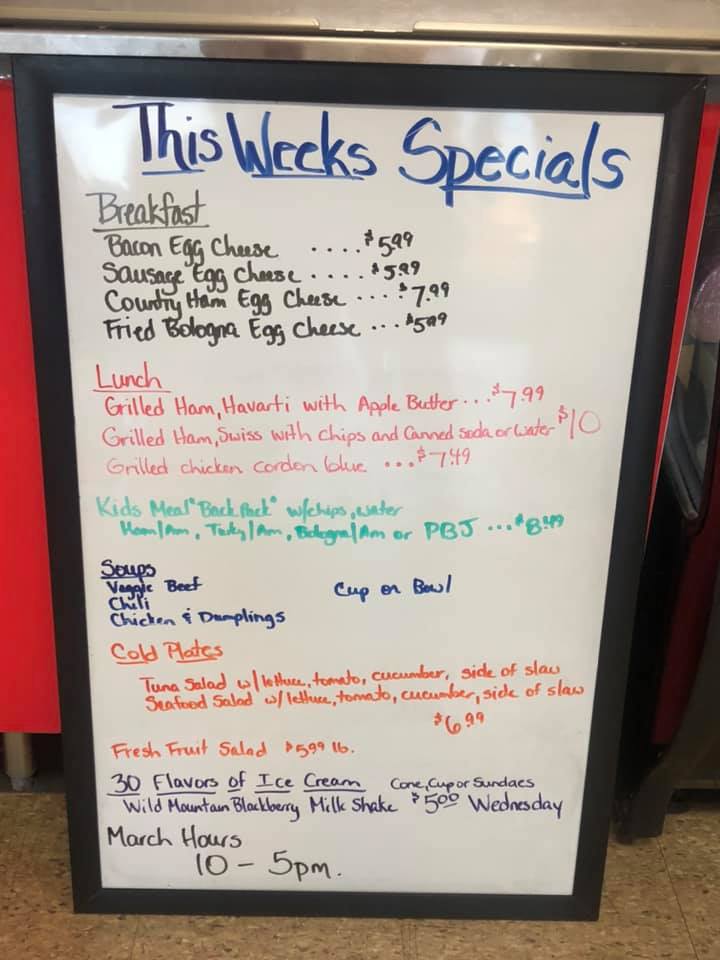 This Weeks Specials
Breakfast
Bacon Egg Cheese .... $5.99
Sausage Egg Cheese .... $5.99
Country Ham Egg Cheese ... $7.99
Fried Bologna Egg Cheese ... $5.99
Lunch
Grilled Ham, Havarti with Apple Butter ... $7.99
Grilled Ham, Swiss with chips and Canned soda or water $10
Grilled chicken cordon blue ... $7.49
Kids Meal "Back Pack" w/chips, water
Ham/Am, Turky/Am, Bologna/Am or PBJ ... $8.49
Soups
Veggie Beef Cup or Bowl
Chili
Chicken & Dumplings
Cold Plates
Tuna Salad w/ lettuce, tomato, cucumber, side of slaw
Seafood Salad w/ lettuce, tomato, cucumber, side of slaw
$6.99
Fresh Fruit Salad $5.99 lb.
30 Flavors of Ice Cream Cone, Cup or Sundaes
Wild Mountain Blackberry Milk Shake $5.00 Wednesday
March Hours
10 - 5pm.